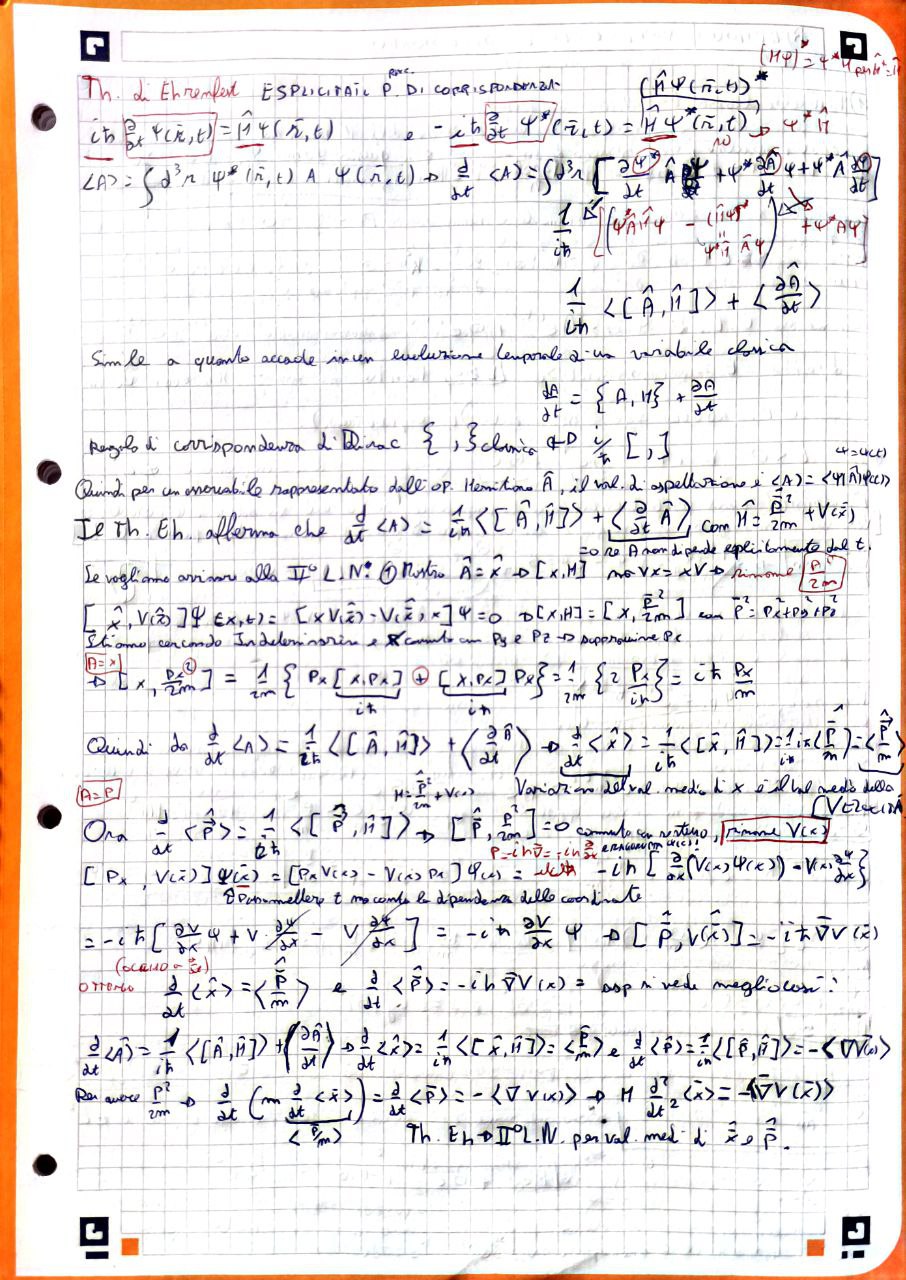 (Hψ)* = ψ*H
Th. di Ehrenfest ESPLICITA IL P. DI CORRISPONDENZA
(Ĥ Ψ(r̄,t))*
iħ ∂/∂t Ψ(r̄,t) = Ĥ Ψ(r̄,t) e -iħ ∂/∂t Ψ*(r̄,t) = Ĥ Ψ*(r̄,t) → Ψ* Ĥ
NO
<A> = ∫ d³r Ψ*(r̄,t) A Ψ(r̄,t) → d/dt <A> = ∫ d³r [ ∂Ψ*/∂t Â Ψ + Ψ* ∂Â/∂t Ψ + Ψ* Â ∂Ψ/∂t ]
1/iħ [ (Ψ*ÂĤΨ - (ĤΨ)* + Ψ*AΨ ]
Ψ*Ĥ ÂΨ
1/iħ <[Â,Ĥ]> + <∂Â/∂t>
Simile a quanto accade in evoluzione temporale di una variabile classica
dA/dt = {A,H} + ∂A/∂t
Regola di corrispondenza di Dirac { , } classica ⇔ i/ħ [ , ]
Ψ=Ψ(t)
Quindi per un osservabile rappresentato dall'op. Hermitiano Â, il val. di aspettazione è <A> = <Ψ|Â|Ψ(t)>
Il Th. Eh. afferma che d/dt <A> = 1/iħ <[Â,Ĥ]> + <∂/∂t Â> con Ĥ = p̄²/2m + V(x̄)
=0 se A non dipende esplicitamente dal t.
Se vogliamo arrivare alla II° L.N. ① Mostro Â = x̂ → [x,H] ma Vx = xV → rimane p²/2m
[x̂, V(x̄)]Ψ(x,t) = [xV(x̄) - V(x̄)x]Ψ = 0 → [x,H] = [x, p̄²/2m] con p̄² = Px²+Py²+Pz²
Stiamo cercando Indeterminazione e x commuta con Py e Pz → sopravvive Px
A=x
→ [x, Px²/2m] = 1/2m { Px [x,Px] + [x,Px] Px } = 1/2m { 2 Px iħ } = iħ Px/m
iħ iħ
Quindi da d/dt <A> = 1/iħ <[Â,Ĥ]> + <∂Â/∂t> → d/dt <x̂> = 1/iħ <[x̄,Ĥ]> = 1/iħ iħ <p̄/m> = <p̄/m>
A=P H = p̄²/2m + V(x) Variazione del val. medio di x è il val. medio della VELOCITÀ
Ora d/dt <P̂> = 1/iħ <[P̂,Ĥ]> → [P̂, p²/2m] = 0 commuta con sé stesso, rimane V(x)
P = -iħ∇̄ = -iħ ∂/∂x
[Px, V(x̄)]Ψ(x̄) = [PxV(x) - V(x)Px]Ψ(x) = -iħ [ ∂/∂x (V(x)Ψ(x)) - V(x) ∂Ψ/∂x ]
t ma conta la dipendenza delle coordinate
= -iħ [ ∂V/∂x Ψ + V ∂Ψ/∂x - V ∂Ψ/∂x ] = -iħ ∂V/∂x Ψ → [P̂, V(x̂)] = -iħ ∇̄V(x̄)
OTTENGO d/dt <x̂> = <P̂/m> e d/dt <P̂> = -iħ ∇̄V(x) = si vede meglio così:
d/dt <Â> = 1/iħ <[Â,Ĥ]> + <∂Â/∂t> → d/dt <x̂> = 1/iħ <[x̄,Ĥ]> = <p̄/m> e d/dt <p̄> = 1/iħ <[p̄,Ĥ]> = -<∇V(x)>
Per avere p²/2m → d/dt (m d/dt <x̄>) = d/dt <p̄> = -<∇V(x)> → M d²/dt² <x̄> = -<∇̄V(x̄)>
<p̄/m> Th. Eh → II° L.N. per val. medi di x̄ e p̄.